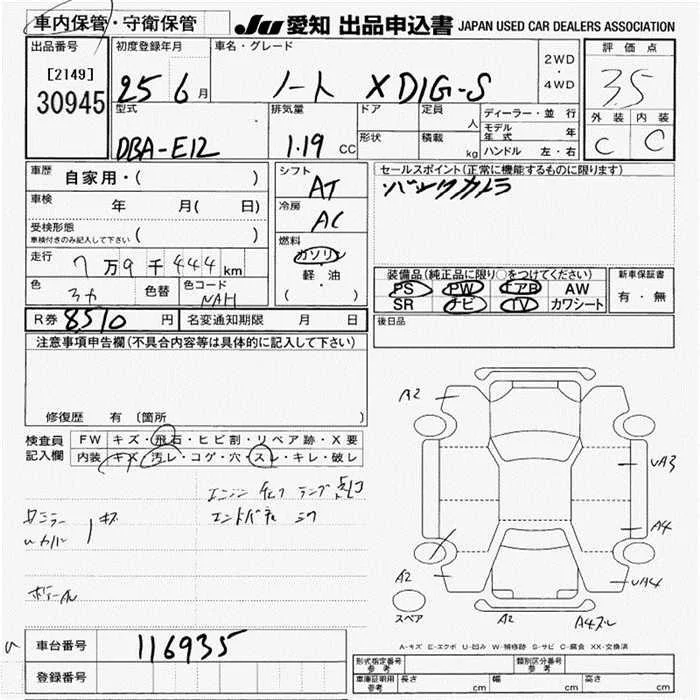 車内保管・守衛保管
JU 愛知 出品申込書 JAPAN USED CAR DEALERS ASSOCIATION
出品番号
[2149]
30945
初度登録年月
25 6 月
車名・グレード
ノート X DIG-S
2WD
・
4WD
評価点
3.5
外装 内装
C C
型式
DBA-E12
排気量
1.19 CC
ドア
形状
定員
人
積載
kg
ディーラー・並行
モデル年式 年
ハンドル 左・右
車歴 自家用・( )
車検 年 月( 日)
受検形態
車検付きのみ記入して下さい ( )
走行 7万9千444km
色 色替 色コード
NAH
シフト
AT
冷房
AC
燃料
ガソリン
軽・油
( )
セールスポイント(正常に機能するものに限ります)
バックカメラ
装備品(純正品に限り○をつけてください)
PS PW エアB AW
SR ナビ TV カワシート
新車保証書
有・無
後日品
R券 8510 円 名変通知期限 月 日
注意事項申告欄(不具合内容等は具体的に記入して下さい)
修復歴 有 〔箇所 〕
検査員記入欄
FW キズ・飛石・ヒビ割・リペア跡・X要
内装 キズ・汚レ・コゲ・穴・スレ・キレ・破レ
エンジン チェック ランプ 点灯
キズ
A2
UA3
A4
UA4
A2
A2
スペア
A-キズ E-エクボ U-凹み W-補修跡 S-サビ C-腐食 XX-交換済
車台番号 116935
登録番号
形式指定番号 参考
類別区分番号 参考
車庫証明用 参考 長さ cm 幅 cm 高さ cm